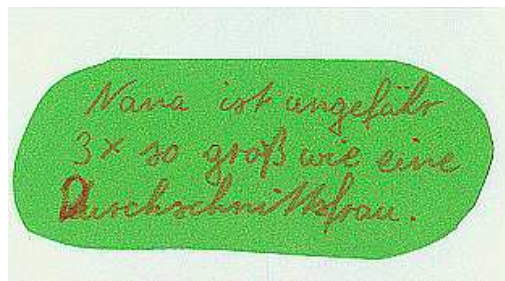 Nana ist ungefähr
3x so groß wie eine
Durschschnittsfrau.